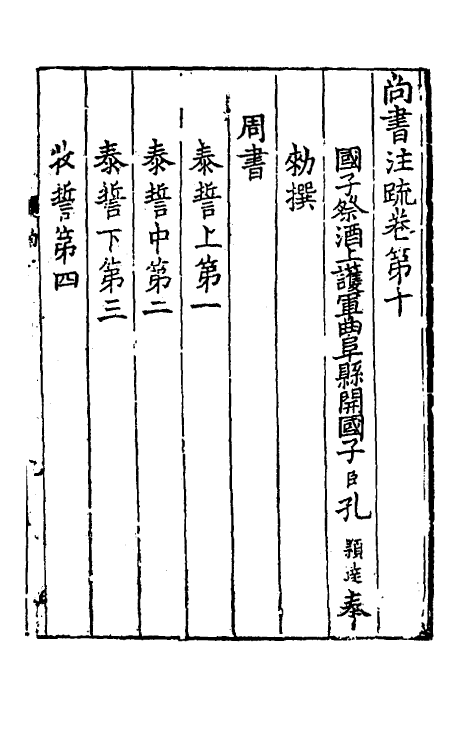 尚書注疏卷第十
國子祭酒上護軍曲阜縣開國子臣孔穎達奉
勑撰
周書
泰誓上第一
泰誓中第二
泰誓下第三
牧誓第四